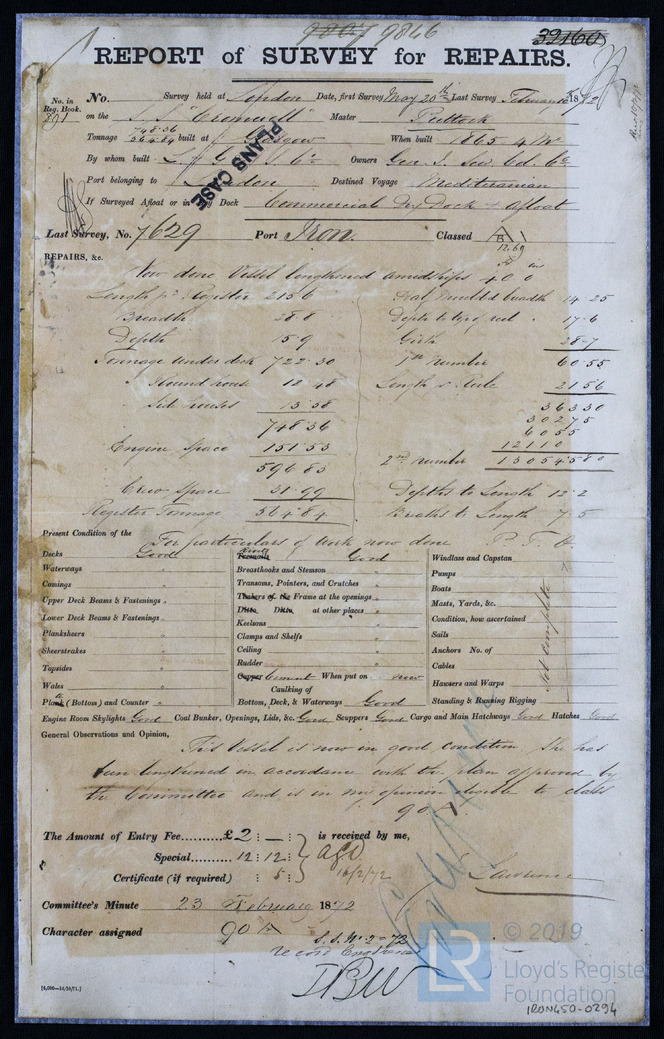 9007 9846
32160
REPORT of SURVEY for REPAIRS.
No. in Reg. Book. No. Survey held at London Date, first Survey May 20th Last Survey February 1872
891 on the S.S. "Cromwell" Master
Tonnage 748.36 564.84 built at Glasgow When built 1865
By whom built Owners
PLANS CASE
Port belonging to London Destined Voyage Mediterranian
If Surveyed Afloat or in Dry Dock Commercial Dry Dock & Afloat
Last Survey, No. 7629 Port Iron. Classed A
12.69
REPAIRS, &c.
Now done Vessel lengthened amidships 40 0
Length pr Register 215.6
Breadth 28.8
Depth 15.9
Tonnage under deck 722.30
" Round house 12.48
13.58
748.36
Engine Space 151.53
596.83
Crew Space 31.99
Register Tonnage 564.84
Half Moulded breadth 14.25
Depth to top of keel 17.6
Girth 28.7
1st Number 60.55
Length 215.6
36330
30275
6055
12110
2nd Number 13054580
Depths to Length 12.2
Breadths to Length 7.5
For particulars of work now done P.T.O.
Present Condition of the
Decks Good
Waterways "
Comings "
Upper Deck Beams & Fastenings "
Lower Deck Beams & Fastenings "
Planksheers "
Sheerstrakes "
Topsides "
Wales "
Plank (Bottom) and Counter "
Treenails Rivets Good
Breasthooks and Stemson "
Transoms, Pointers, and Crutches "
Timbers of the Frame at the openings "
Ditto. Ditto. at other places "
Keelsons "
Clamps and Shelfs "
Ceiling "
Rudder "
Copper Cement When put on new
Caulking of
Bottom, Deck, & Waterways Good
Windlass and Capstan
Pumps
Boats
Masts, Yards, &c.
Condition, how ascertained
Sails
Anchors No. of
Cables
Hawsers and Warps
Standing & Running Rigging
Not complete
Engine Room Skylights Good Coal Bunker, Openings, Lids, &c. Good Scuppers Good Cargo and Main Hatchways Good Hatches Good
General Observations and Opinion,
This Vessel is now in good condition She has
been lengthened in accordance with the plan approved by
the Committee and is in my opinion eligible to class
90 A
The Amount of Entry Fee..........£ 2 : — : is received by me,
Special.......... 12 : 12 :
Certificate (if required) : 5 :
16/2/72
Lawrence
Committee's Minute 23 February 1872
Character assigned 90 A
S.S. No 2 - 72
[6,000—14/10/71.]
© 2019
LR Lloyd's Register
Foundation
IRON450-0294